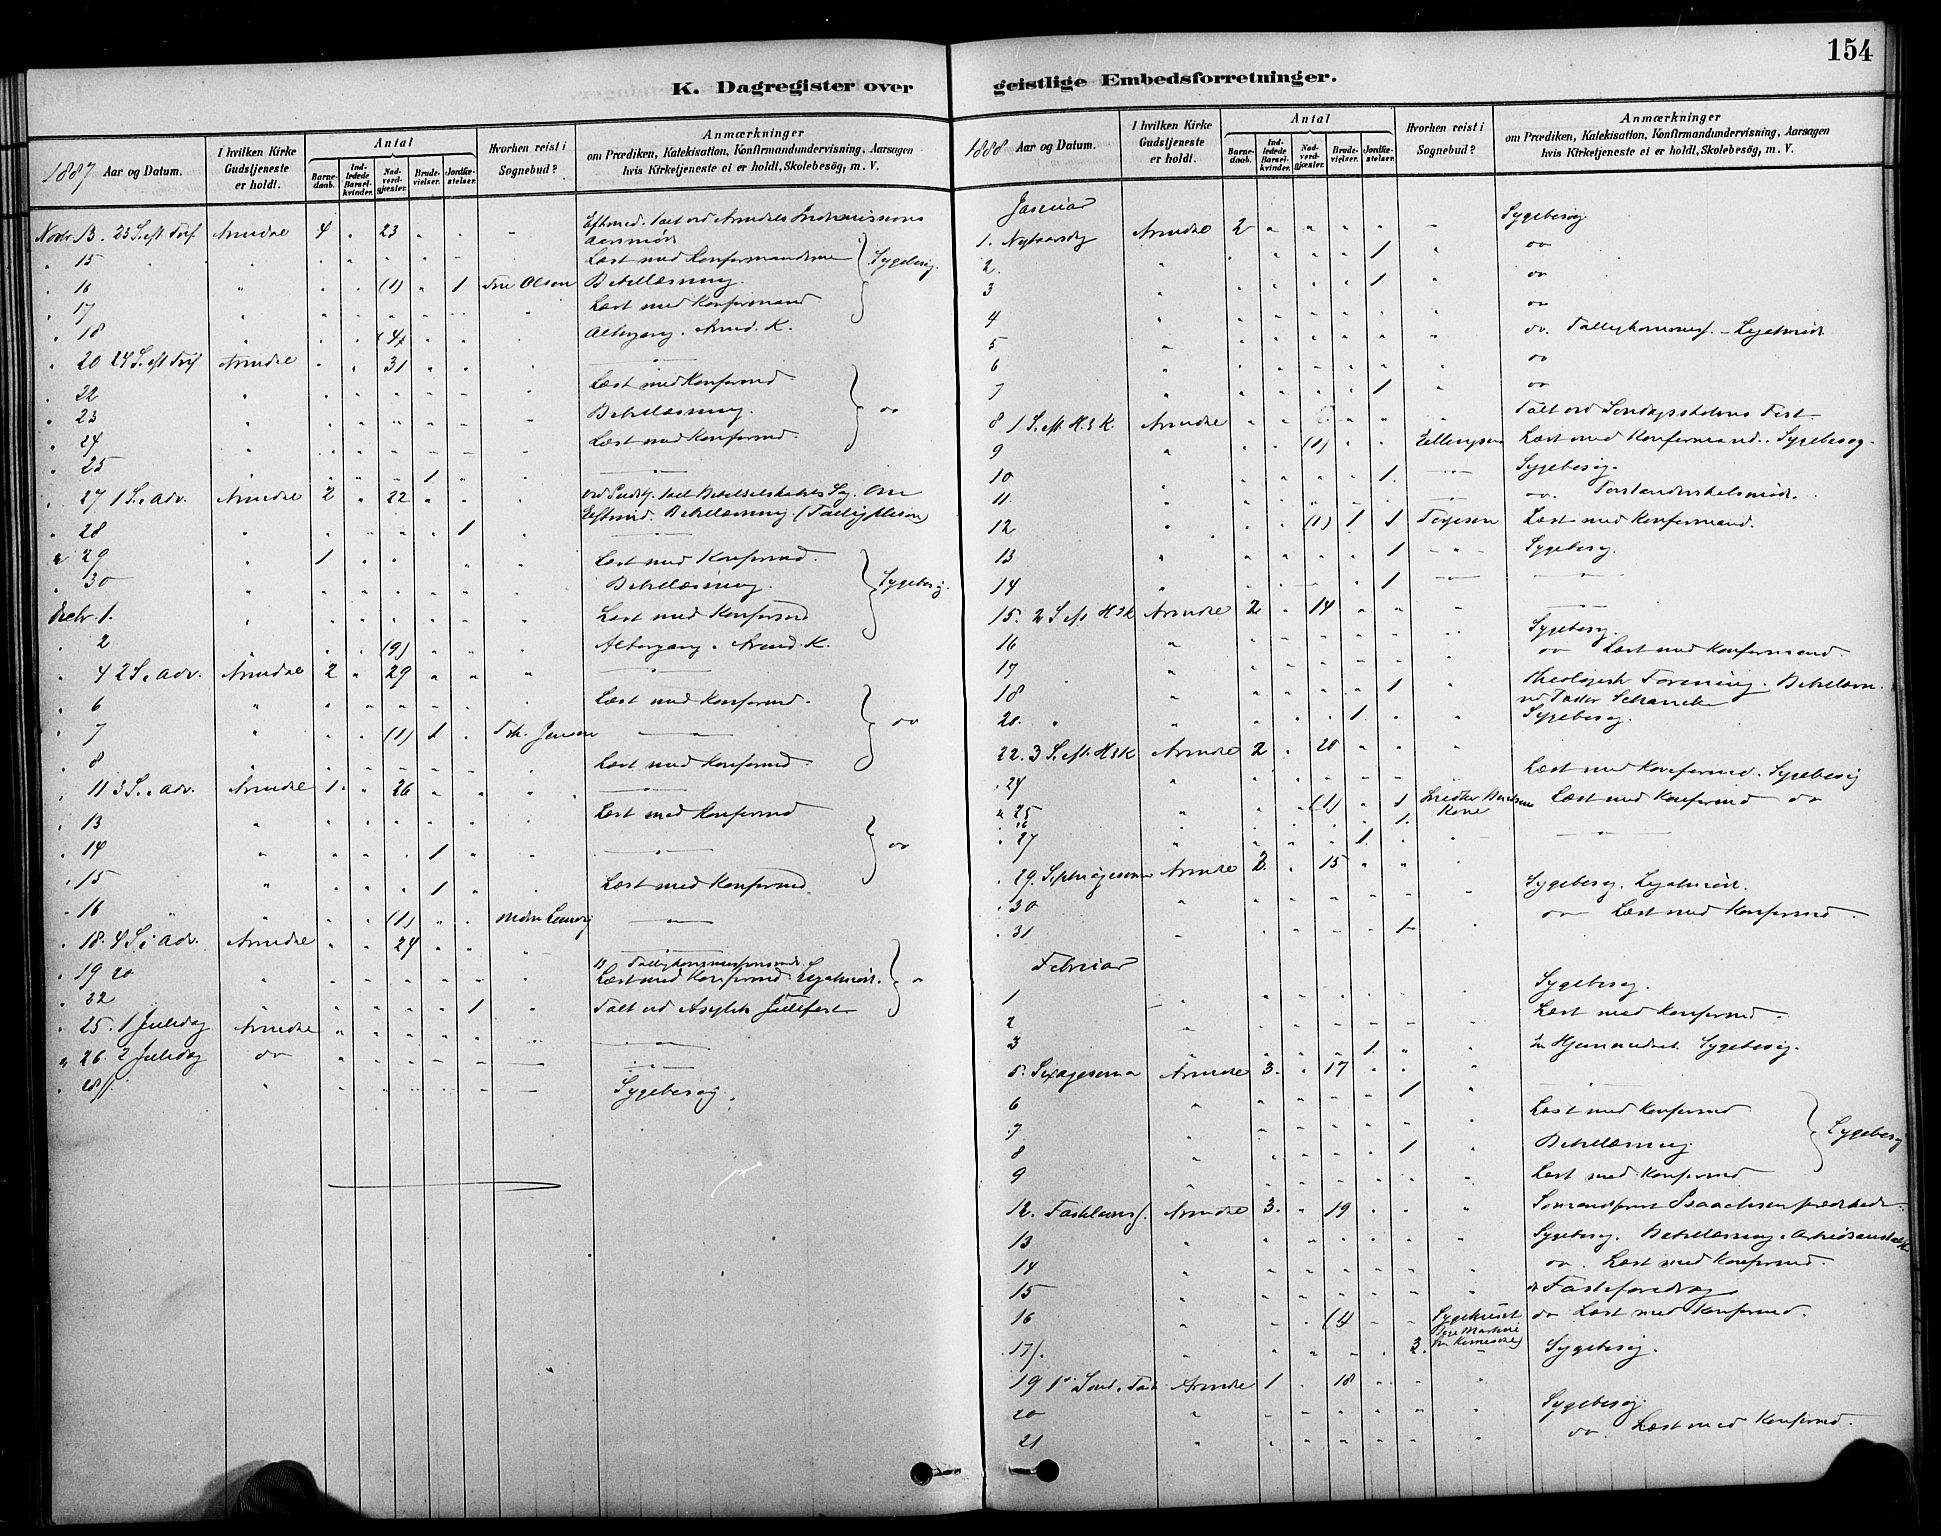 154
K. Dagregister over geistlige Embedsforretninger.
1887 Aar og Datum. I hvilken Kirke Gudstjeneste er holdt. Antal Barnedaab. Indledede Barselkvinder. Nadverdgjester. Brudevielser. Jordfæstelser. Hvorhen reist i Sognebud? Anmærkninger om Prædiken, Katekisation, Konfirmandundervisning, Aarsagen hvis Kirketjeneste ei er holdt, Skolebesög, m. V.
Novbr 13. 23 S. eft Tref Arendal 4 " 23 " " " Eftmid. talt ved Arendals Indremissions
Aarsmøde
" 15 Læst med Konfirmanderne Sygebesøg.
" 16 (1) " 1 Olsen Bibellæsning.
" 17 Læst med Konfirmand
" 18 (4) Altergang. Arend. K.
" 20 24 S. eft Tref Arendal " " 31
" 22 Læst med Konfirmd
" 23 Bibellæsning. do
" 24 Læst med Konfirmd.
" 25 1
" 27 1 S. i Adv. Arendal 2 " 22
Eftmid. Bibellæsning
" 28 1
" 29 1 Læst med Konfirmd.
" 30 Bibellæsning. Sygebesøg.
Decbr 1. Læst med Konfirmd
" 2 (9) Altergang i Arend. K.
" 4 2 S. i Adv. Arendal 2 " 29
" 6 Læst med Konfirmd.
" 7 (1) 1 Jensen do
" 8 Læst med Konfirmd.
" 11 3 S. i Adv. Arendal 1 " 26
" 13 Læst med Konfirmd
" 14 1 do
" 15 1 Læst med Konfirmd
" 16 (1)
" 18. 4 S. i Adv. Arendal " " 24
" 19 20 Læst med Konfirmd.
" 22 1 Talt ved Asylets Julefest
" 25. 1 Juledag Arendal
" 26. 2 Juledag do
" 28/ Sygebesøg.
1888 Aar og Datum. I hvilken Kirke Gudstjeneste er holdt. Antal Barnedaab. Indledede Barselkvinder. Nadverdgjester. Brudevielser. Jordfæstelser. Hvorhen reist i Sognebud? Anmærkninger om Prædiken, Katekisation, Konfirmandundervisning, Aarsagen hvis Kirketjeneste ei er holdt, Skolebesög, m. V.
Januar
1. Nytaarsdg Arendal 2 Sygebesøg
2. 1 do
3 1 do
4 do
5 do
6 do
7 1 do
8 1 S. eft. H.3 K. Arendal Talt ved Søndagsskolens Fest.
9 (1) Ellingsen Læst med Konfirmand. Sygebesøg.
10 1 Sygebesøg.
11 do. Forstanderskabsmøde.
12 (1) 1 1 Terjesen Læst med Konfirmand.
13 1 Sygebesøg.
14 1
15. 2 S. eft H3K Arendal 2 " 14
16 Sygebesøg
17 do Læst med Konfirmand.
18 1 Theologisk Forening. Bibellæsn.
20. 1 Sygebesøg.
22. 3 S. eft. H3K Arendal 2 " 20
24 Læst med Konfirmd. Sygebesøg
25 (1) " 1 Kone Læst med Konfirmd do
26 1.
27 1
29. Septuagesima Arendal 2. " 15
30 Sygebesøg.
31 1 do Læst med Konfirmd.
Februar
1 Sygebesøg.
2 Læst med Konfirmd.
3 1 Sygebesøg.
5. Sexagesima Arendal 3. " 17
6 1 Læst med Konfirmd
7 Sygebesøg
8 1 Bibellæsning.
9 Læst med Konfirmd
12. Fastelavns Arendal 3. " 19 Sømandsprest Isaachsen prædikede.
13 Sygebesøg. Bibellæsning i Arbeidsanstalt
14 do. Læst med Konfirmd.
15 Fasteforedrag
16 Sygehuset do Læst med Konfirmd.
17/. 2. Sygebesøg.
19 1. Sønd. i Fast Arendal 1 " 18
20 Sygebesøg
21 do. Læst med Konfirmd.